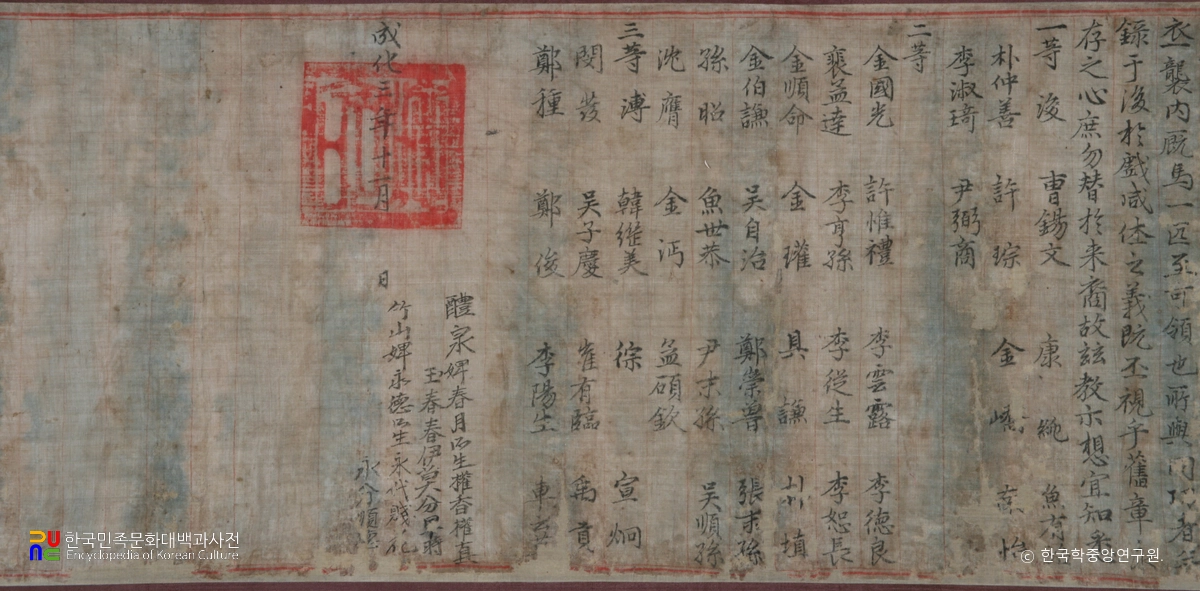 衣一襲內廐馬一匹至可領也所與
錄于後於戲咸休之義旣丕視乎舊章
存之心庶勿替於來裔故玆敎示想宜知悉
一等 浚 曺錫文 康純 魚有
朴仲善 許琮 金嶠 李叔琦
李淑琦 尹弼商
二等
金國光 許惟禮 李雲露 李德良
裵孟達 李亨孫 李從生 李恕長
金順命 金瓘 具謙 朴植
金伯謙 吳自治 鄭崇魯 張末孫
孫昭 魚世恭 尹末孫 吳順孫
沈膺 金沔 孟碩欽
三等 溥 韓繼美 宣炯
閔發 吳子慶 崔有臨 禹貢
鄭種 鄭俊 李陽生 車
成化三年十一月 日
醴泉婢春月
玉春春伊
竹山婢永德
Encyclopedia of Korean Culture
한국민족문화대백과사전
© 한국학중앙연구원.